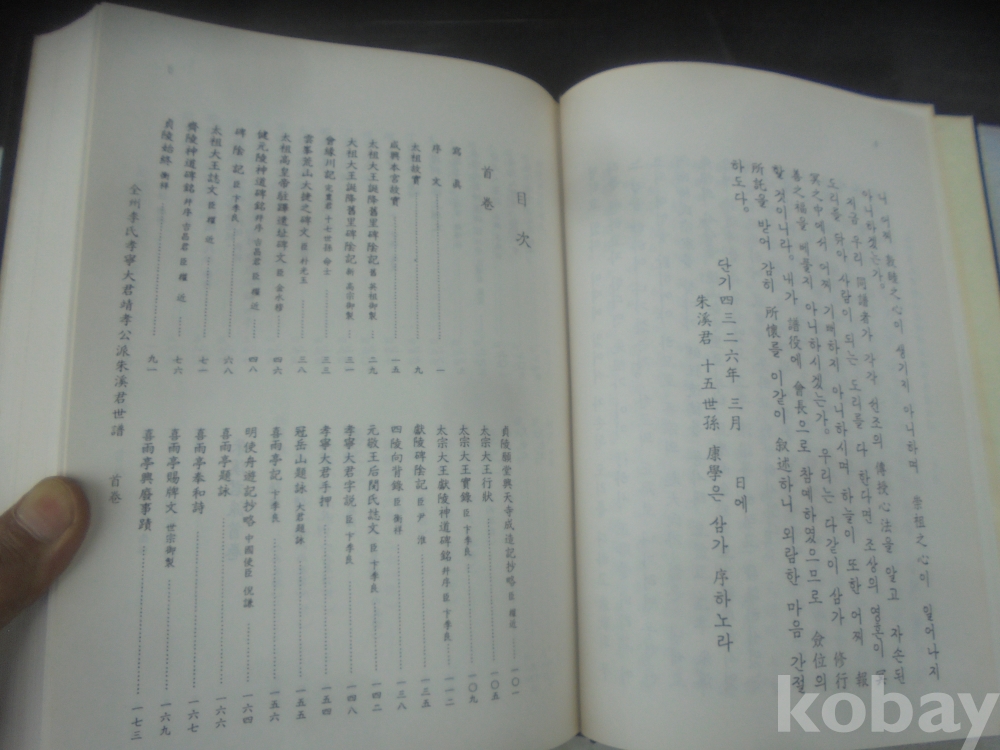 니 어찌 敦睦之心이 생기지 아니하며 崇祖之心이 일어나지
아니하겠는가.
지금 우리 同譜者가 각각 선조의 傳授心法을 알고 자손된
도리를 닦아 사람이 되는 도리를 다 한다면 조상의 영혼이
冥之中에서 어찌 기뻐하지 아니하시며 하늘이 또한 어찌 報
善之福을 베풀지 아니하시겠는가. 우리는 다같이 삼가 修行
할 것이니라. 내가 譜役에 會長으로 참예하였으므로 僉位의
所託을 받어 감히 所懷를 이같이 敘述하니 외람한 마음 간절
하도다.
단기 四三二六年 三月 日에
朱溪君 十五世孫 康學은 삼가 序하노라
目次
首卷
寫眞
序文 一
太祖敍實 九
咸興本宮敍實 一五
太祖大王誕降舊里碑陰記 舊 英祖御製 二九
太祖大王誕降舊里碑陰記 新 高宗御製 三一
會緣川記 十七世孫 三三
雲峯荒山大捷之碑文 臣 三八
太祖高皇帝駐蹕遺址碑文 臣 金永穆 四六
健元陵神道碑銘 幷序 吉昌君 臣 權近 四八
碑陰記 臣 卞季良 六八
太祖大王誌文 臣 權近 七一
齊陵神道碑銘 幷序 吉昌君 臣 權近 七六
貞陵始終 衡祥 九一
貞陵願堂興天寺成造記抄略 臣 權近 一〇一
太宗大王行狀 一〇五
太宗大王實錄 臣 卞季良 一〇九
太宗大王獻陵神道碑銘 幷序 臣 卞季良 一一二
獻陵碑陰記 臣 尹淮 一三五
四陵向背錄 臣 衡祥 一三八
元敬王后閔氏誌文 臣 卞季良 一四二
孝寧大君字說 臣 卞季良 一四八
孝寧大君手押 一五四
冠岳山題詠 大君題詠 一五五
喜雨亭記 卞季良 一五六
明使舟遊記抄略 中國使臣 倪謙 一六四
喜雨亭題詠 一六六
喜雨亭奉和詩 一六七
喜雨亭賜牌文 世宗御製 一六九
喜雨亭興廢事蹟 一七三
全州李氏孝寧大君靖孝公派朱溪君世譜 首卷
kobay